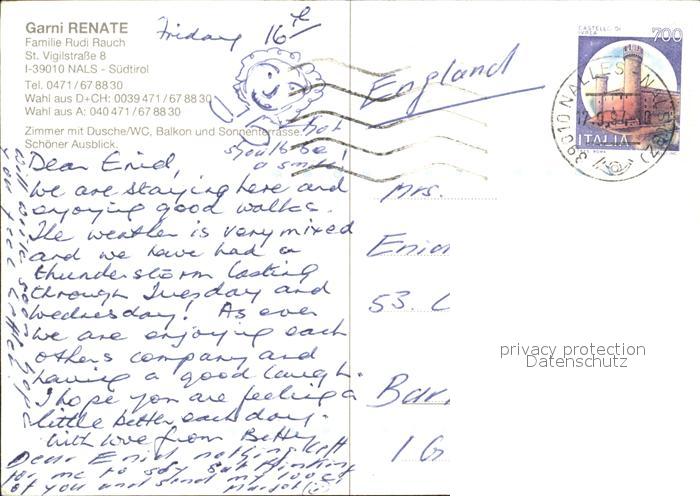 Garni RENATE
Familie Rudi Rauch
St. Vigilstraße 8
I-39010 NALS - Südtirol
Tel. 0471/678830
Wahl aus D+CH: 0039 471/678830
Wahl aus A: 040 471/678830
Zimmer mit Dusche/WC, Balkon und Sonnenterrasse.
Schöner Ausblick.
Friday 16
that
should be
a smile!
Dear Enid,
We are staying here and
enjoying good walks.
The weather is very mixed
and we have had a
thunderstorm lasting
through Tuesday and
Wednesday! As ever
we are enjoying each
others company and
having a good laugh.
I hope you are feeling a
little better each day.
With love from Betty
Dear Enid nothing left
for me to say but thinking
of you and send my love
Margot
Will write soon hope
you feel better
England
Mrs.
Enid
53. 
Bar
CASTELLO DI
IVREA
700
ITALIA
39010 NALLES - NALS (BZ)
privacy protection
Datenschutz